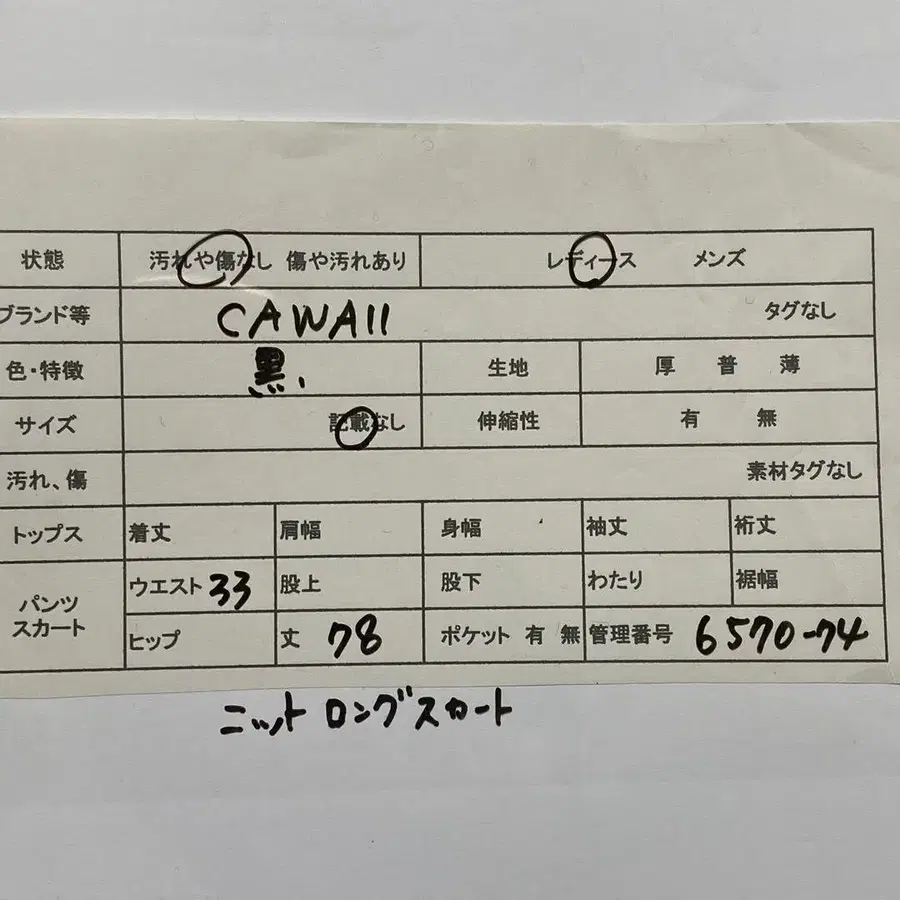 状態 汚れや傷なし 傷や汚れあり レディース メンズ
ブランド等 CAWAII タグなし
色・特徴 黒. 生地 厚 普 薄
サイズ 記載なし 伸縮性 有 無
汚れ、傷 素材タグなし
トップス 着丈 肩幅 身幅 袖丈 裄丈
パンツ スカート ウエスト 33 股上 股下 わたり 裾幅
ヒップ 丈 78 ポケット 有 無 管理番号 6570-74
ニット ロングスカート